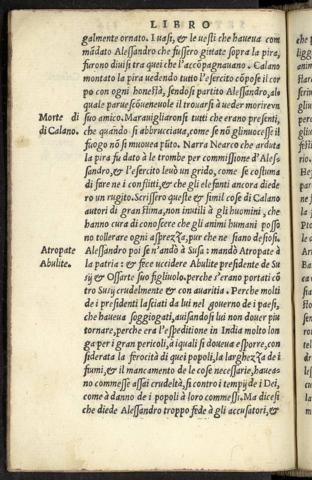 LIBRO
galmente ornato. I uasi, & le uesti che haueua com
mãdato Alessandro che fussero gittate sopra la pira,
furono diuisi tra quei che l'accõpagnauano. Calano
montato la pira uedendo tutto l'esercito cõpose il cor
po con ogni honestà, sendosi partito Alessandro, al
quale parue scõueneuole il trouarsi à ueder morire vn
Morte di
di Calano.
suo amico. Marauigliaronsi tutti che erano presenti,
che quãdo si abbrucciaua, come se nõ gli nuocesse il
fuogo nõ si moueua pũto. Narra Nearco che arduta
la pira fu dato à le trombe per commissione d'Ales-
sandro, & l'esercito leuò un grido, come se costuma
di fare ne i conflitti, & che gli elefanti ancora diede
ro un rugito. Scrissero queste & simil cose di Calano
autori di gran stima, non inutili à gli huomini, che
hanno cura di conoscere che gli animi humani posso
no tollerare ogni asprezza, pur che ne siano desiosi.
Atropate
Abulite.
Alessandro poi se n'andò à Susa: mandò Atropate à
la patria: & fece uccidere Abulite presidente de Su
sij & Ossarte suo figliuolo. perche l'erano portati cõ
tro Susij crudelmente & con auaritia. Perche molti
de i presidenti lasciati da lui nel gouerno de i paesi,
che haueua soggiogati, auisandosi lui non douer piu
tornare, perche era l'espeditione in India molto lon
ga per i gran pericoli, à iquali si doueua esporre, con
siderata la ferocità di quei popoli, la larghezza de i
fiumi, & il mancamento de le cose necessarie, haueа-
no commesse assai crudeltà, si contro i tempij de i Dei,
come à danno de i popoli à loro commessi. Ma dicesi
che diede Alessandro troppo fede à gli accusatori, &